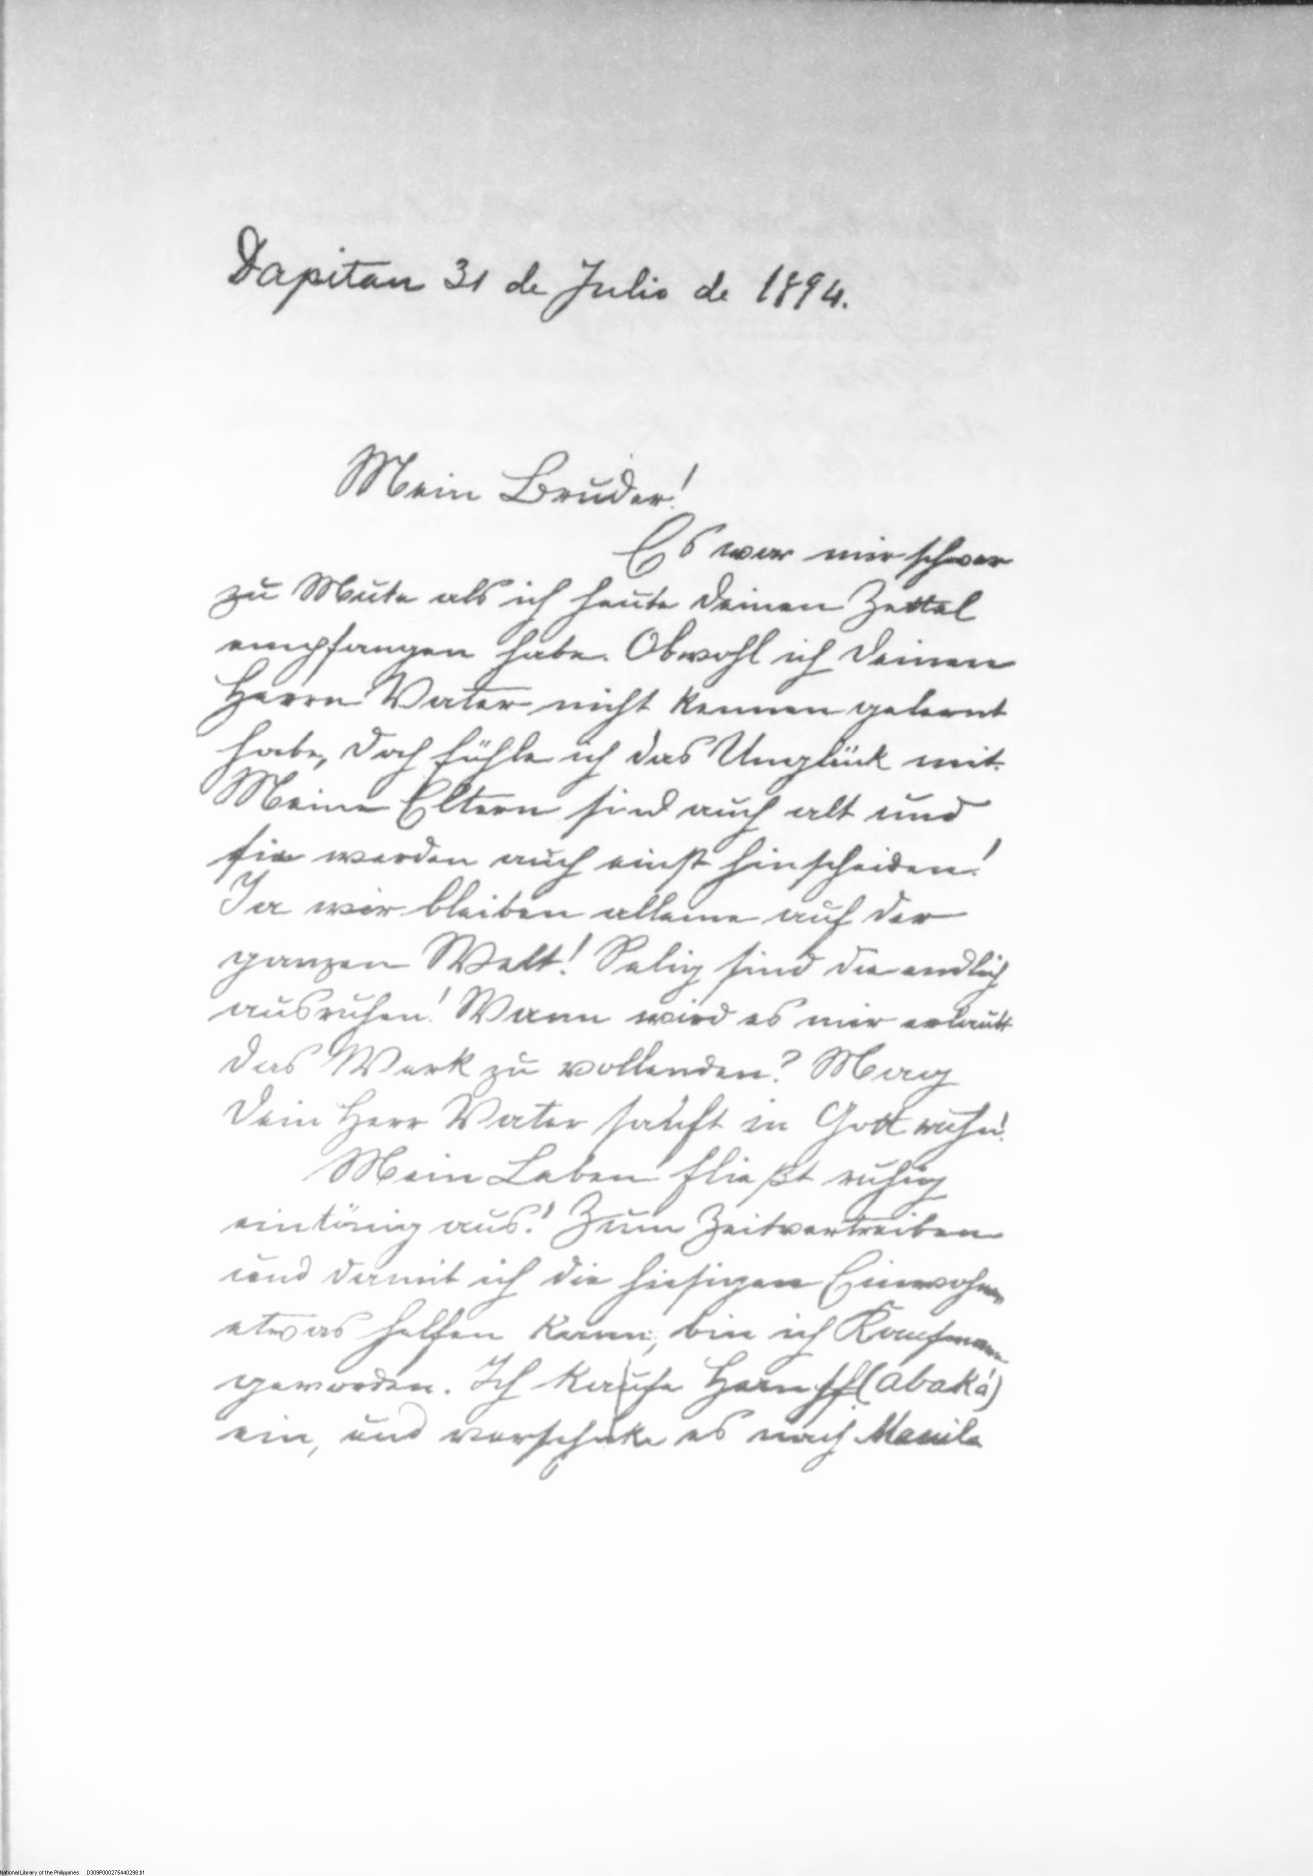 Dapitan 31 de Julio de 1894.
Mein Bruder!
Es war mir schwer
zu Mute als ich heute deinen Zettel
empfangen habe. Obwohl ich deinen
Herrn Vater nicht kennen gelernt
habe, doch fühle ich das Unglück mit.
Meine Eltern sind auch alt und
sie werden auch einst hinscheiden!
Ja wir bleiben alleine auf der
ganzen Welt! Selig sind die endlich
ausruhen! Wann wird es mir erlaubt
das Werk zu vollenden? Mag
dein Herr Vater sanft in Gott ruhn!
Mein Leben fließt ruhig
eintönig aus! Zum Zeitvertreiben
und damit ich die hiesigen Einwohner
etwas helfen kann, bin ich Kaufmann
geworden. Ich kaufe Hanf (abaká)
ein, und verschicke es nach Manila
National Library of the Philippines